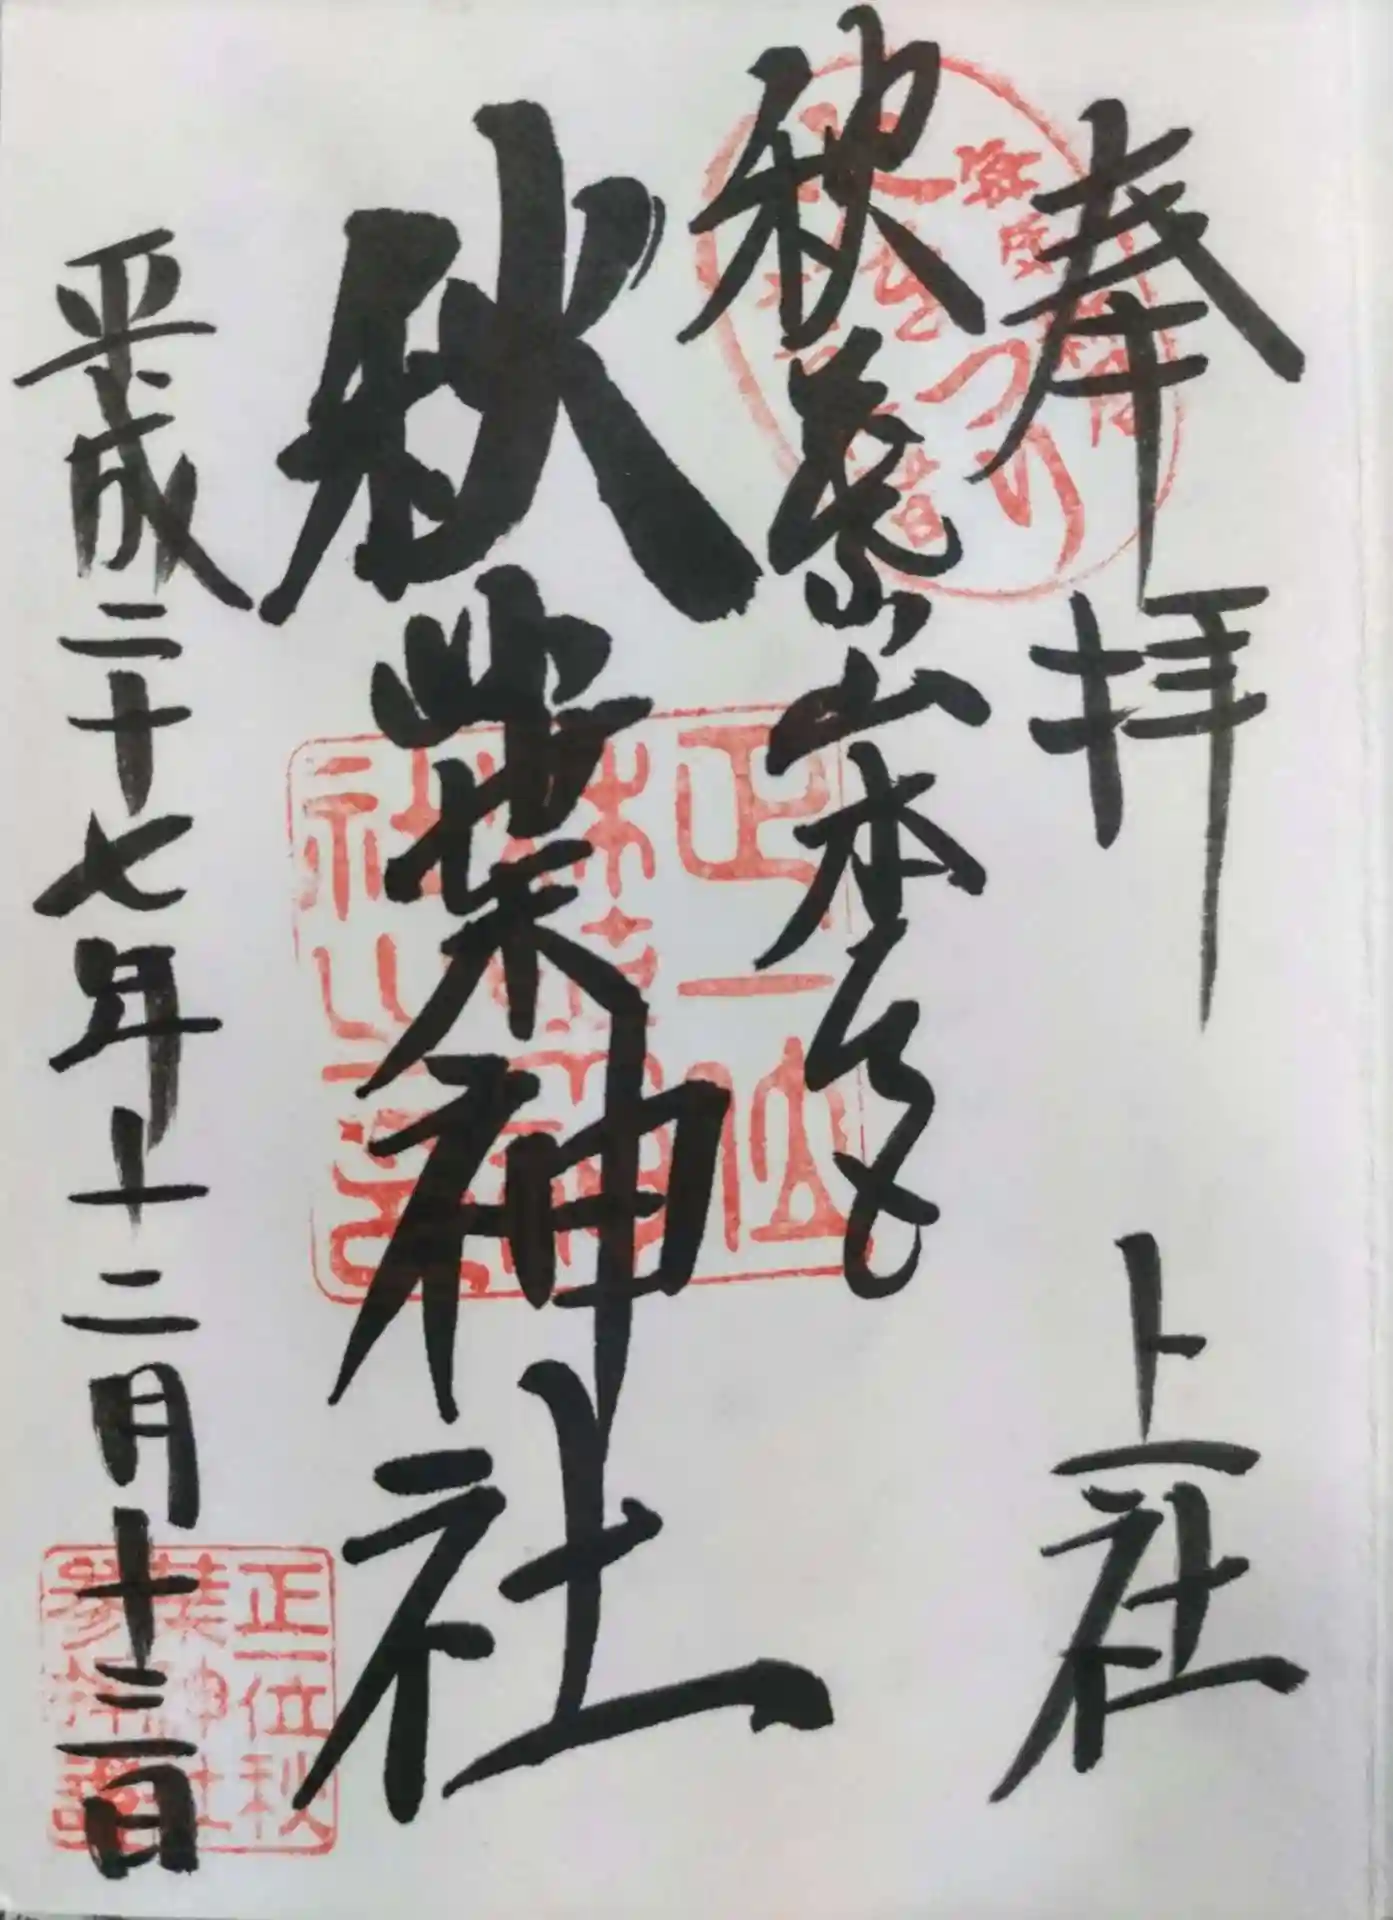 奉拝　上社
秋葉山本宮
秋葉神社
平成二十七年十二月十三日
正一位秋
葉神社
参拝證
正一位
秋葉神
社之璽